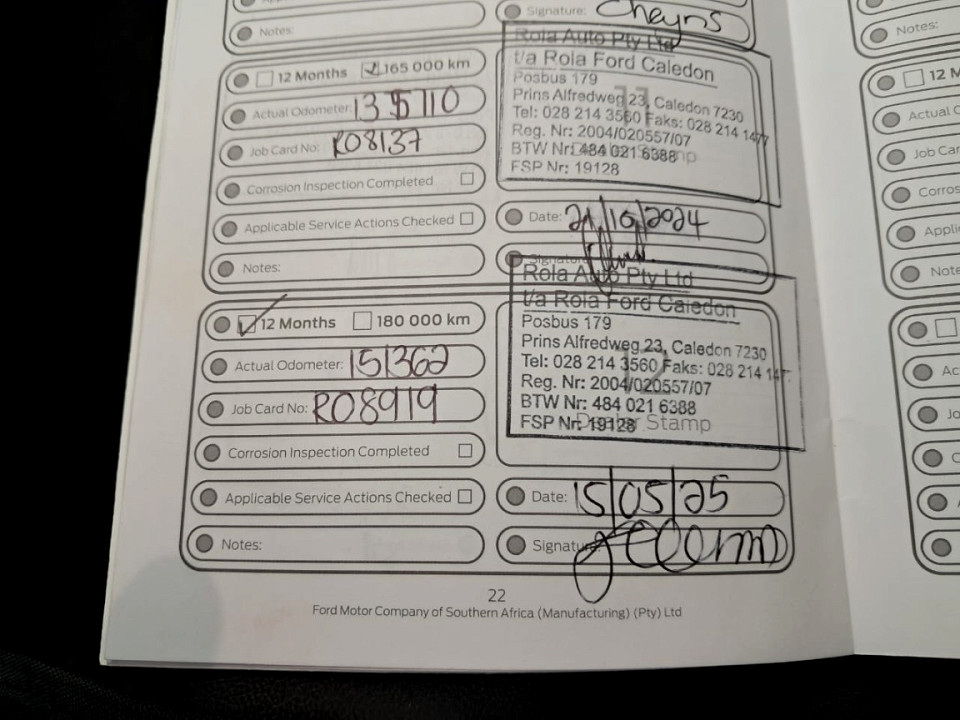 Signature: Cheyns
Notes:
12 Months 165 000 km
Actual Odometer: 135710
Job Card No: R08137
Corrosion Inspection Completed
Applicable Service Actions Checked
Notes:
Rola Auto Pty Ltd
t/a Rola Ford Caledon
Posbus 179
Prins Alfredweg 23, Caledon 7230
Tel: 028 214 3560 Faks: 028 214 1477
Reg. Nr: 2004/020557/07
BTW Nr: 484 021 6388
FSP Nr: 19128
Date: 21/10/2024
Signature:
12 Months 180 000 km
Actual Odometer: 151362
Job Card No: R08919
Corrosion Inspection Completed
Applicable Service Actions Checked
Notes:
Rola Auto Pty Ltd
t/a Rola Ford Caledon
Posbus 179
Prins Alfredweg 23, Caledon 7230
Tel: 028 214 3560 Faks: 028 214 147
Reg. Nr: 2004/020557/07
BTW Nr: 484 021 6388
FSP Nr: 19128
Dealer Stamp
Date: 15/05/25
Signature:
22
Ford Motor Company of Southern Africa (Manufacturing) (Pty) Ltd
Notes:
12 M
Actual O
Job Car
Corros
Appli
Note
Ac
Jo
C
A